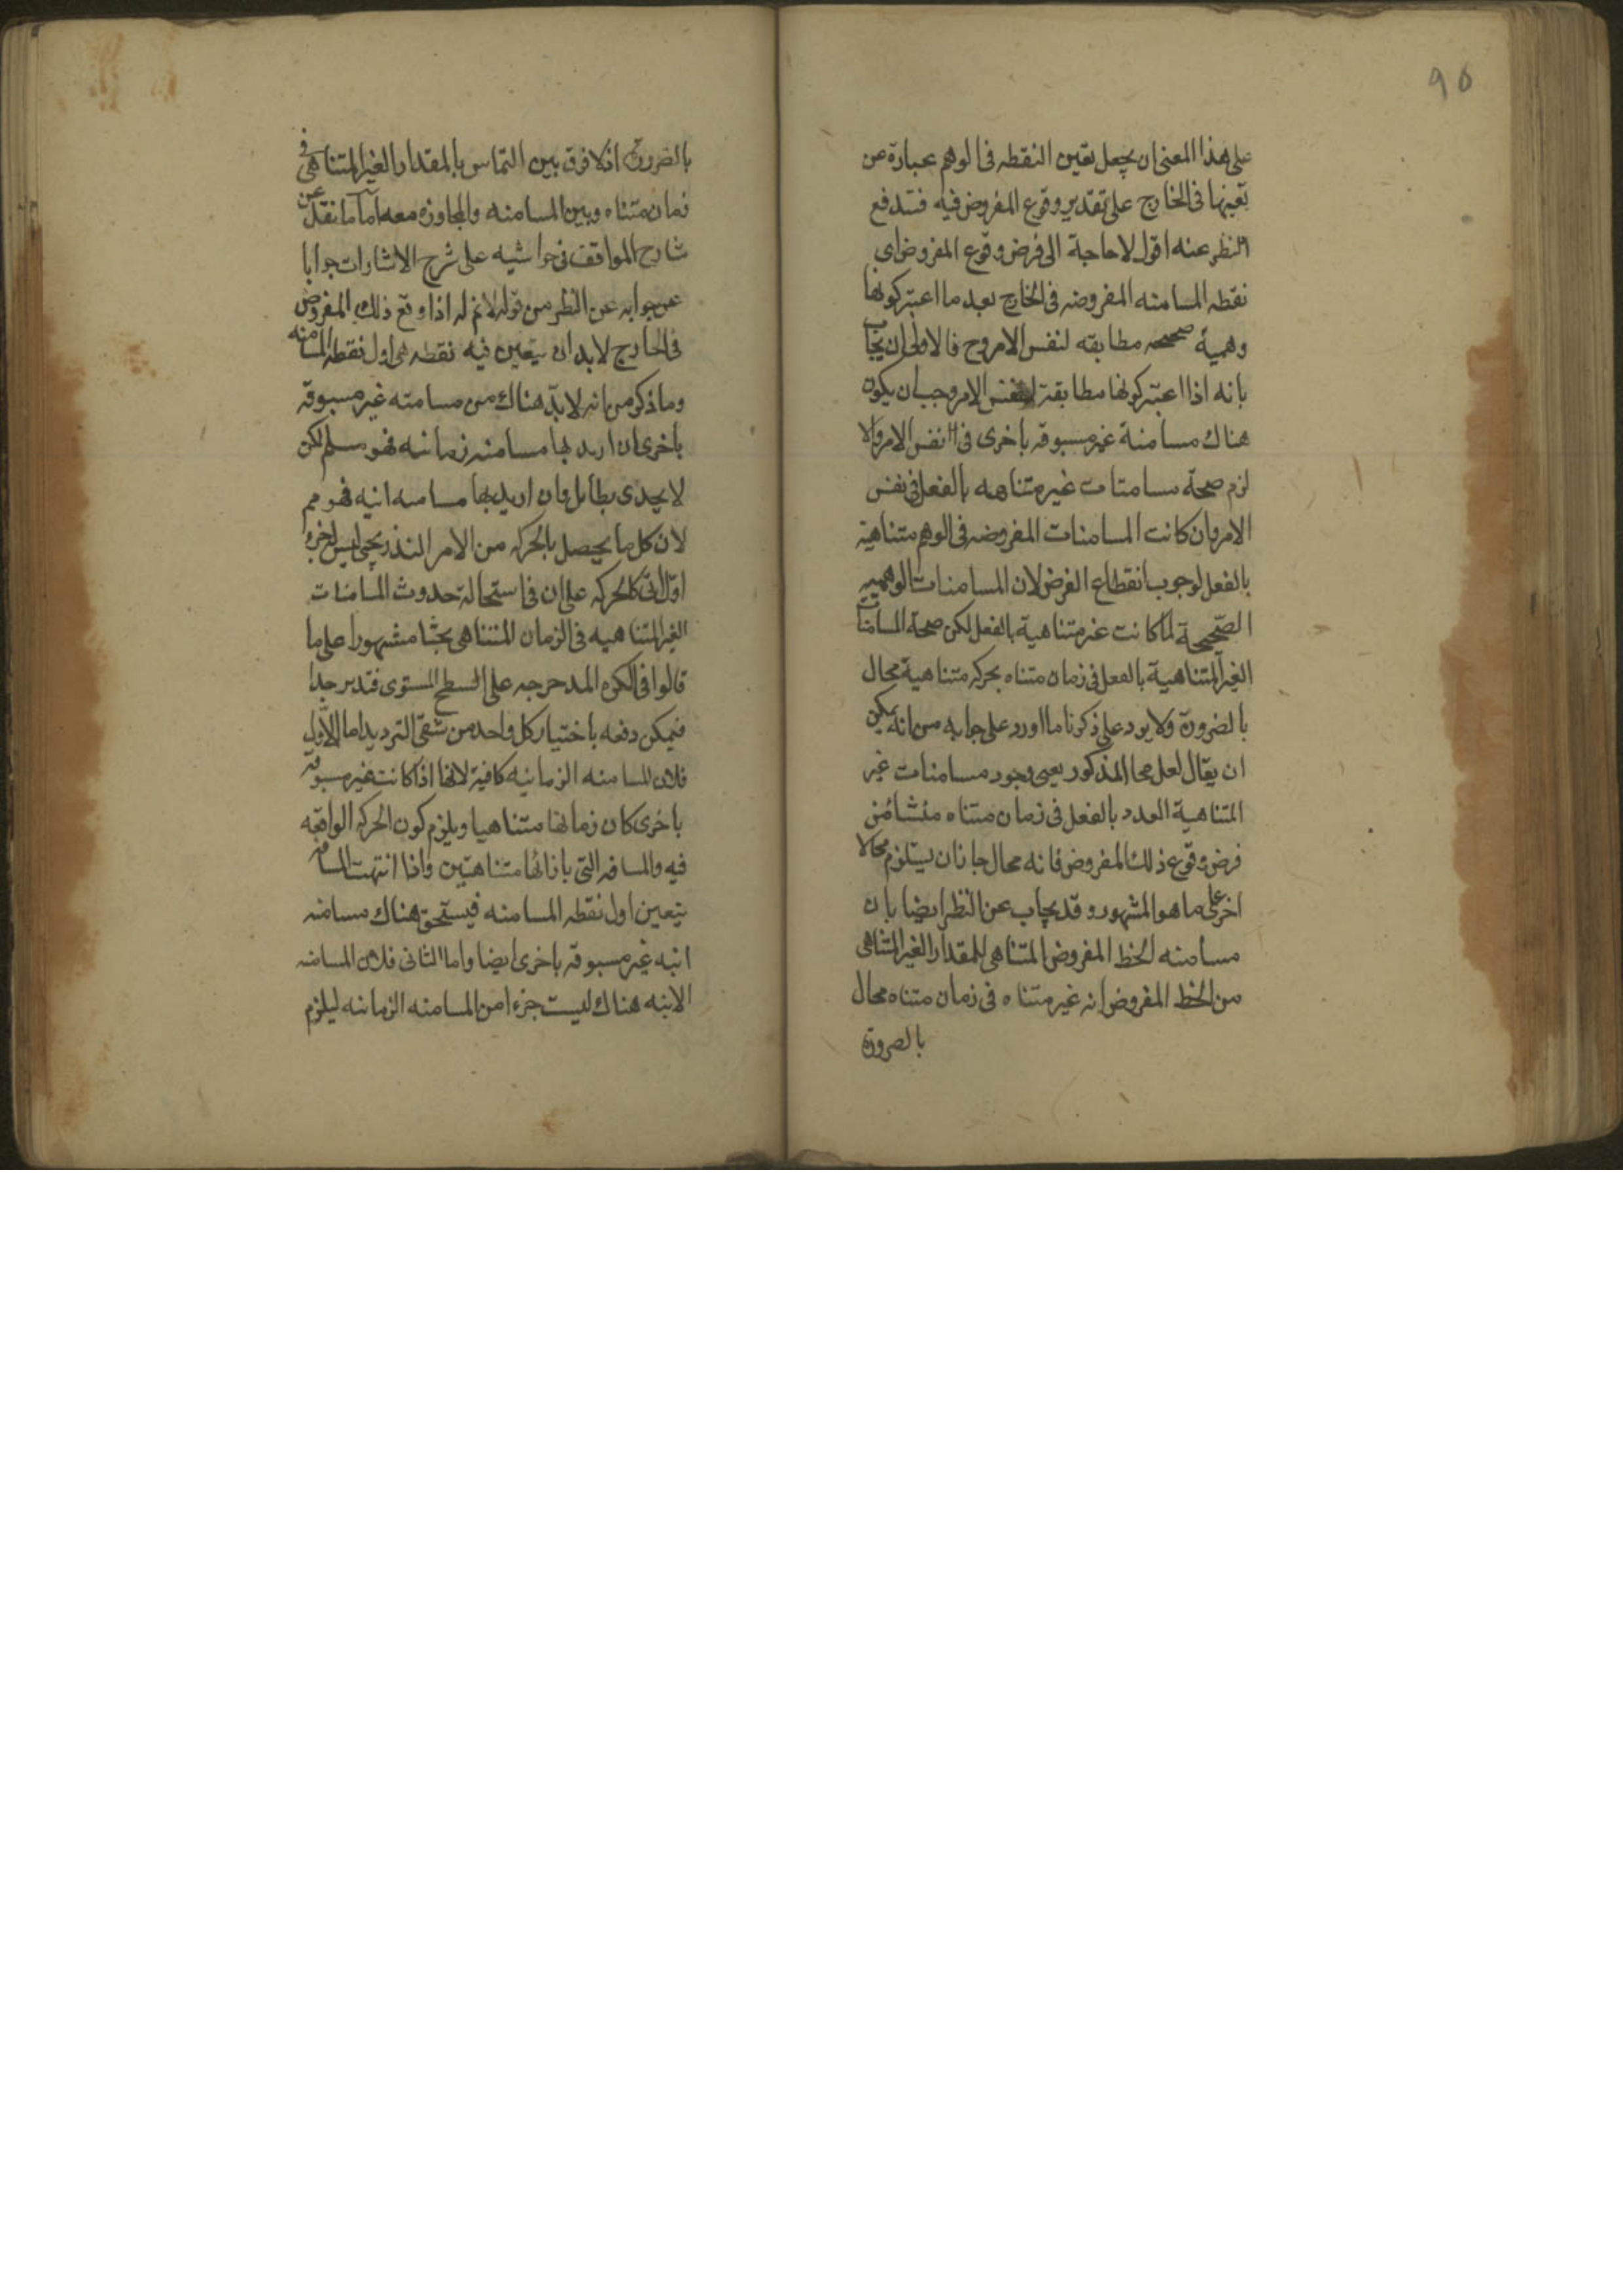 95
على هذا المعنى ان يجعل تعين النقطه فى الوهم عبارة عن
تعينها فى الخارج على تقدير وقوع المفروض فيه فتدفع
النظر عنه اقول لا حاجة الى فرض وقوع المفروض اى
نقطه المسامته المفروضه فى الخارج بعد ما اعتبر كونها
وهمية صحيحه مطابقه لنفس الامر وح فالاولى ان يجاب
بانه اذا اعتبر كونها مطابقة لنفس الامر وجب ان يكون
هناك مسامتة غير مسبوقه باخرى فى نفس الامر والا
لزم صحة مسامتات غير متناهيه بالفعل فى نفس
الامر وان كانت المسامتات المفروضه فى الوهم متناهية
بالفعل لوجوب انقطاع الفرض لان المسامتات الوهميه
الصحيحة لما كانت غير متناهية بالفعل لكن صحة المسامتات
الغير المتناهية بالفعل فى زمان متناه بحركه متناهية محال
بالضرورة ولا يرد على ذكرنا ما اورد على جابه من انه يمكن
ان يقال لعل محا المذكور يعنى وجود مسامتات غير
المتناهية العدد بالفعل فى زمان متناه منشا من
فرض وقوع ذلك المفروض فانه محال جاز ان يستلزم محالا
اخر على ما هو المشهور وقد يجاب عن النظر ايضا بان
مسامته الخط المفروض المتناهى للمقدار الغير المتناهى
من الخط المفروض انه غير متناه فى زمان متناه محال
بالضرورة
بالضرورة اذ لا فرق بين التماس بالمقدار الغير المتناهى فى
زمان متناه وبين المسامته والمجاوزه معه اما ما نقل عن
شارح المواقف فى حواشيه على شرح الاشارات جوابا
عن جوابه عن النظر من قوله لانم انه اذا وقع ذلك المفروض
فى الخارج لابد ان يتعين فيه نقطه هى اول نقطه المسامته
وما ذكر من انه لابد هناك من مسامته غير مسبوقه
باخرى ان اريد بها مسامته زمانيه فهو مسلم لكن
لا يجدى بطايل وان اريد بها مسامته انيه فهو مم
لان كل ما يحصل بالحركه من الامر التدريجى ليس لجزء
اول انى كالحركه على ان فى استحالة حدوث المسامتات
الغير المتناهيه فى الزمان المتناهى بحثا مشهورا على ما
قالوا فى الكره المدحرجه على السطح المستوى فتدبر جدا
فيمكن دفعه باختيار كل واحد من شقى الترديد اما الاول
فلان المسامته الزمانيه كافية لانها اذا كانت غير مسبوقه
باخرى كان زمانها متناهيا ويلزم كون الحركه الواقعه
فيه والمسافه التى بازائها متناهيتين واذا انتهت المسافه
يتعين اول نقطه المسامته فيستحق هناك مسامته
انيه غير مسبوقه باخرى ايضا واما الثانى فلان المسامته
الانيه هناك ليست جزءا من المسامته الزمانيه ليلزم